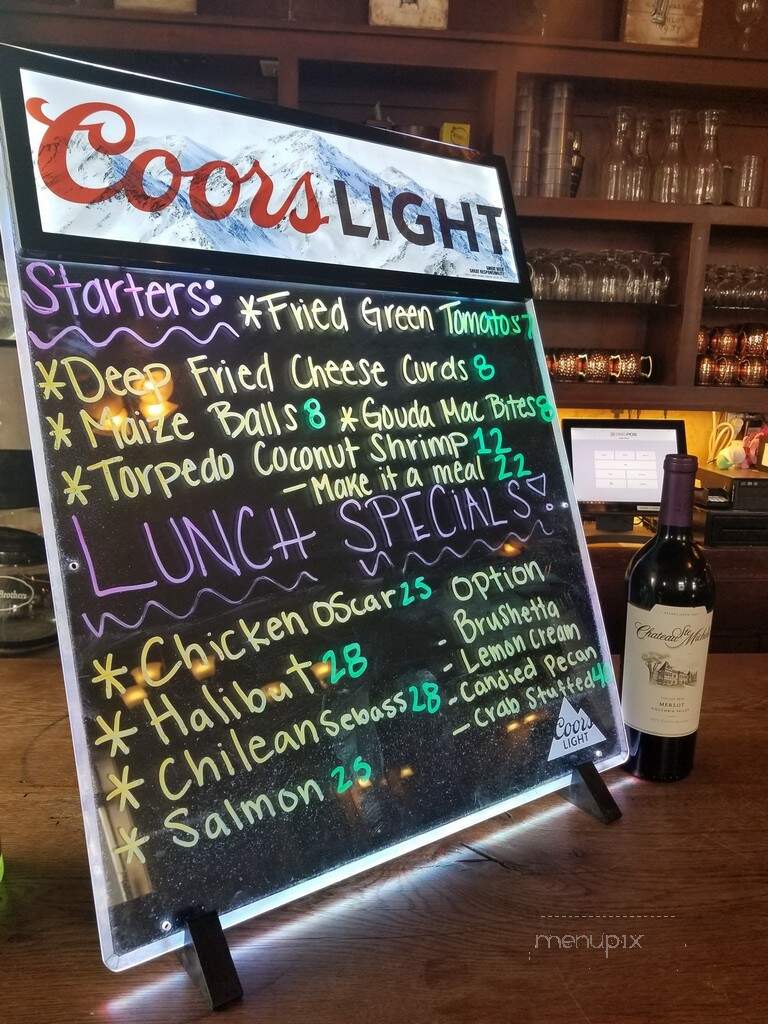 Coors LIGHT
Starters: *Fried Green Tomatos 7
*Deep Fried Cheese Curds 8
*Maize Balls 8 *Gouda Mac Bites 8
*Torpedo Coconut Shrimp 12
-Make it a meal 22
LUNCH SPECIALS!
*Chicken Oscar 25
*Halibut 28
*Chilean Sebass 28
*Salmon 25
Option
- Brushetta
- Lemon Cream
- Candied Pecan
- Crab Stuffed
Coors
LIGHT
Chateau Ste Michelle
MERLOT
COLUMBIA VALLEY
Brothers
menupix